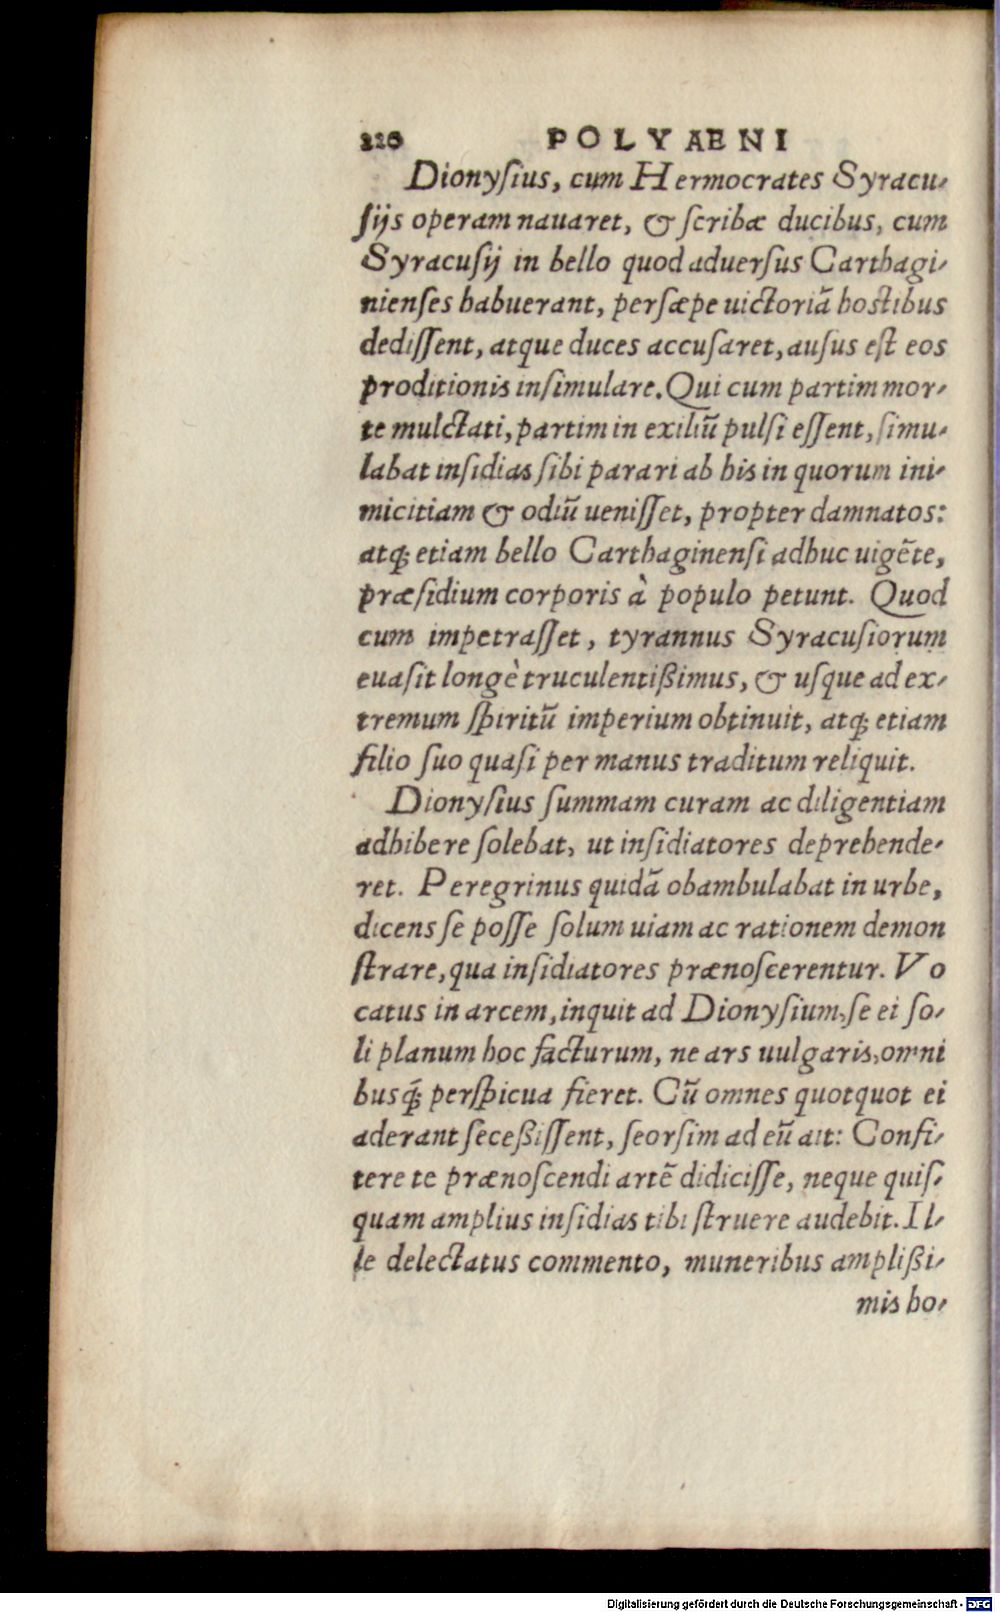 220 POLYAENI
Dionyſius, cum Hermocrates Syracu-
ſijs operam nauaret, & ſcribæ ducibus, cum
Syracuſij in bello quod aduerſus Carthagi-
nienſes habuerant, perſæpe uictoriā hostibus
dediſſent, atque duces accuſaret, auſus eſt eos
proditionis inſimulare. Qui cum partim mor-
te mulctati, partim in exiliū pulſi eſſent, ſimu-
labat inſidias ſibi parari ab his in quorum ini-
micitiam & odiū ueniſſet, propter damnatos:
atq; etiam bello Carthaginenſi adhuc uigēte,
præſidium corporis à populo petunt. Quod
cum impetraſſet, tyrannus Syracuſiorum
euaſit longè truculentißimus, & uſque ad ex-
tremum ſpiritū imperium obtinuit, atq; etiam
filio ſuo quaſi per manus traditum reliquit.
Dionyſius ſummam curam ac diligentiam
adhibere ſolebat, ut inſidiatores deprehende-
ret. Peregrinus quidā obambulabat in urbe,
dicens ſe poſſe ſolum uiam ac rationem demon
ſtrare, qua inſidiatores prænoſcerentur. Vo
catus in arcem, inquit ad Dionyſium, ſe ei ſo-
li planum hoc facturum, ne ars uulgaris, omni
busq́; perſpicua fieret. Cū omnes quotquot ei
aderant ſeceßiſſent, ſeorſim ad eū ait: Confi-
tere te prænoſcendi artē didiciſſe, neque quiſ-
quam amplius inſidias tibi ſtruere audebit. Il-
le delectatus commento, muneribus amplißi-
mis ho-
Digitalisierung gefördert durch die Deutsche Forschungsgemeinschaft - DFG